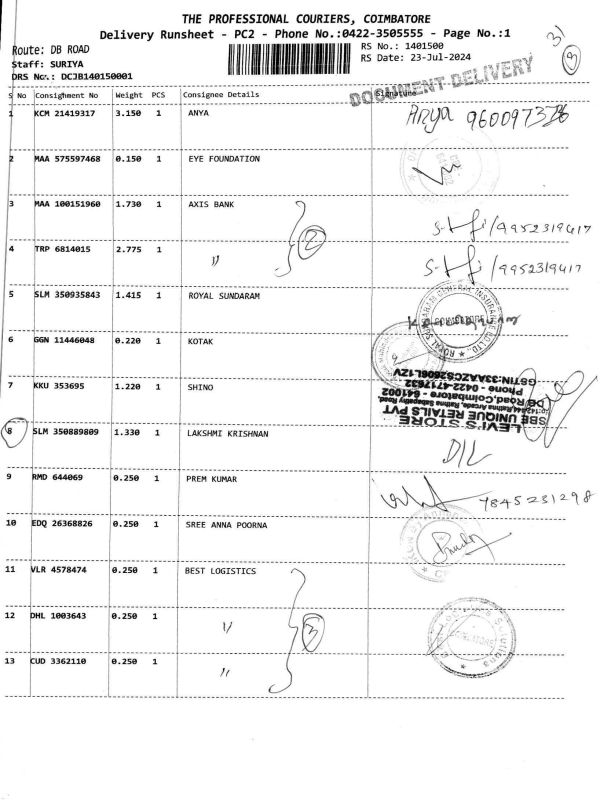 THE PROFESSIONAL COURIERS, COIMBATORE
Delivery Runsheet - PC2 - Phone No.:0422-3505555 - Page No.:1
Route: DB ROAD
Staff: SURIYA
DRS No.: DCJB140150001
RS No.: 1401500
RS Date: 23-Jul-2024
31
3
DOCUMENT DELIVERY
S No Consighment No Weight PCS Consignee Details Signature
1 KCM 21419317 3.150 1 ANYA Anya
2 MAA 575597468 0.150 1 EYE FOUNDATION
3 MAA 100151960 1.730 1 AXIS BANK 9952319617
2
4 TRP 6814015 2.775 1 " 9952319617
5 SLM 350935843 1.415 1 ROYAL SUNDARAM
ROYAL SUNDARAM GENERAL INSURANCE CO. LTD.
COIMBATORE
6 GGN 11446048 0.220 1 KOTAK
7 KKU 353695 1.220 1 SHINO
LEVI'S STORE
SBE UNIQUE RETAILS PVT
DB Road, Coimbatore - 641002
Phone - 0422-4717632
GSTIN:33AAZCS2606L1ZV
8 SLM 350889809 1.330 1 LAKSHMI KRISHNAN D/L
9 RMD 644069 0.250 1 PREM KUMAR 7845231298
10 EDQ 26368826 0.250 1 SREE ANNA POORNA
11 VLR 4578474 0.250 1 BEST LOGISTICS
12 DHL 1003643 0.250 1 "
3
13 CUD 3362110 0.250 1 "